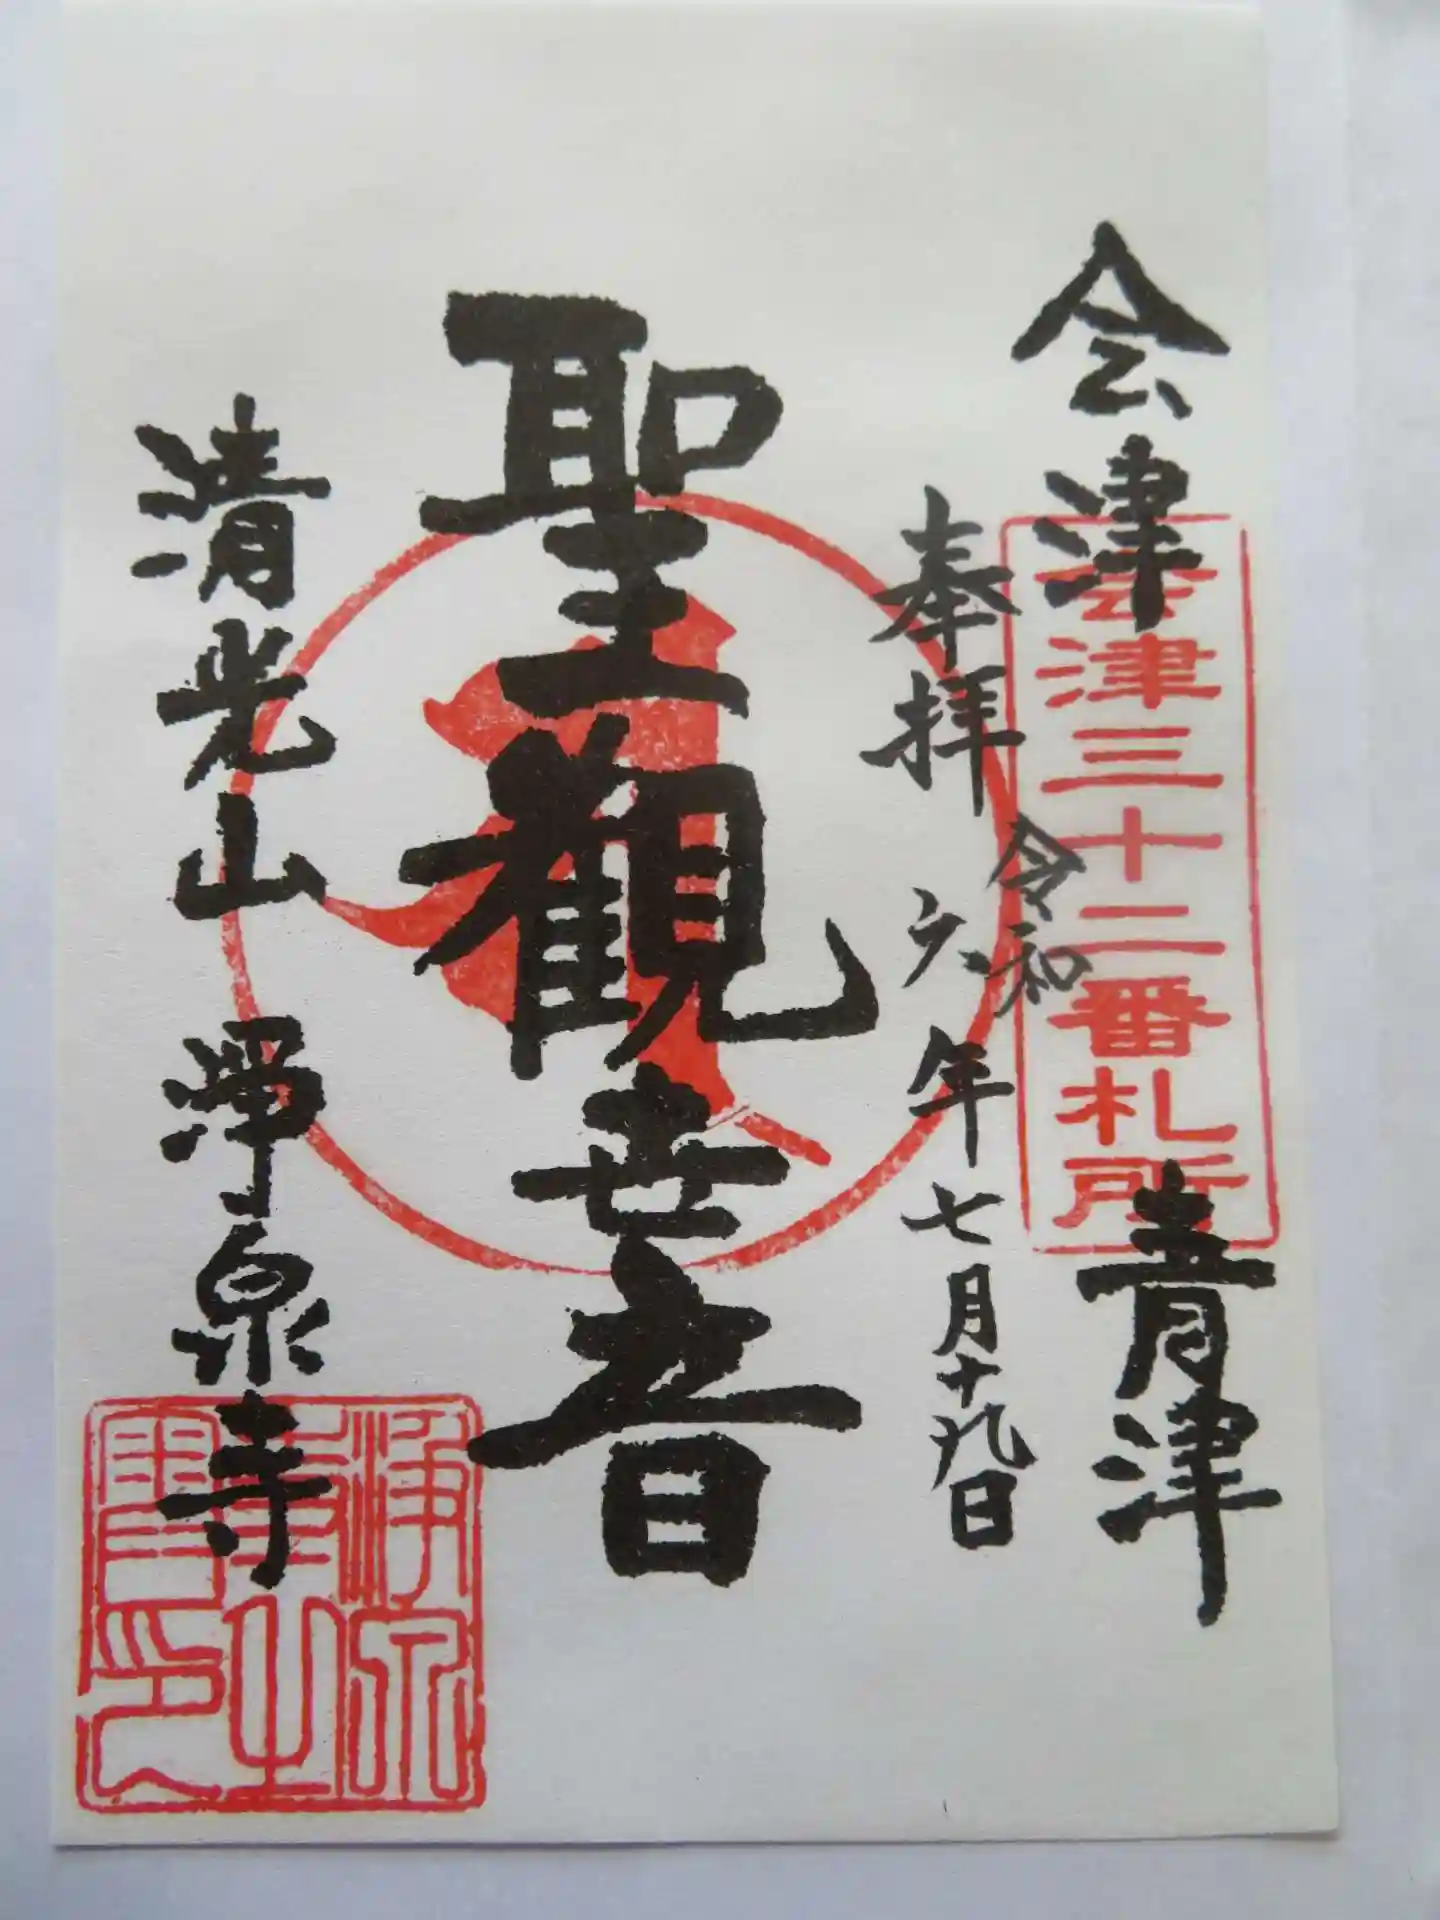 会津 青津
会津三十二番札所
奉拝 令和六年七月十九日
聖観世音
清光山 淨泉寺